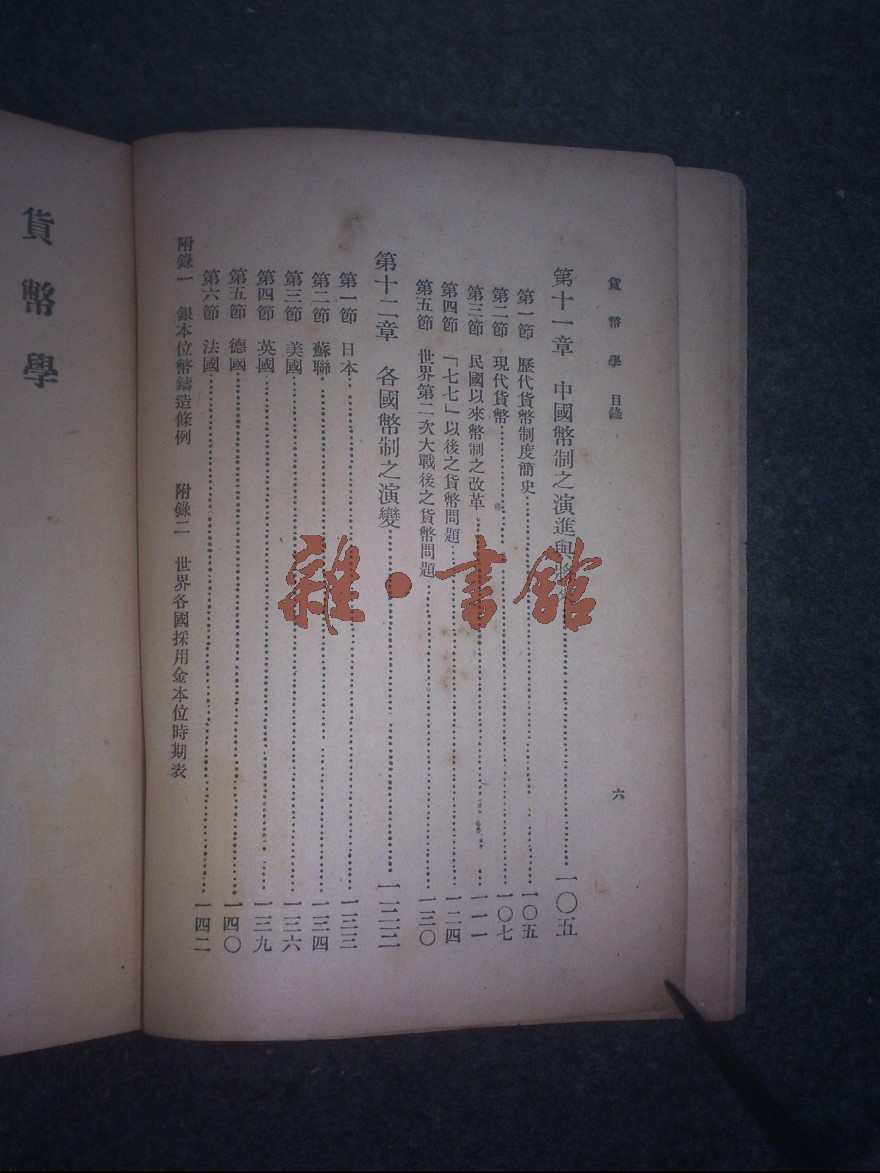 貨幣學 目錄
六
第十一章 中國幣制之演進與……一〇五
第一節 歷代貨幣制度簡史……一〇五
第二節 現代貨幣……一〇七
第三節 民國以來幣制之改革……一一一
第四節 「七七」以後之貨幣問題……一二四
第五節 世界第二次大戰後之貨幣問題……一三〇
第十二章 各國幣制之演變……一三三
第一節 日本……一三三
第二節 蘇聯……一三四
第三節 美國……一三六
第四節 英國……一三九
第五節 德國……一四〇
第六節 法國……一四二
附錄一 銀本位幣鑄造條例 附錄二 世界各國採用金本位時期表
貨幣學
雜·書館